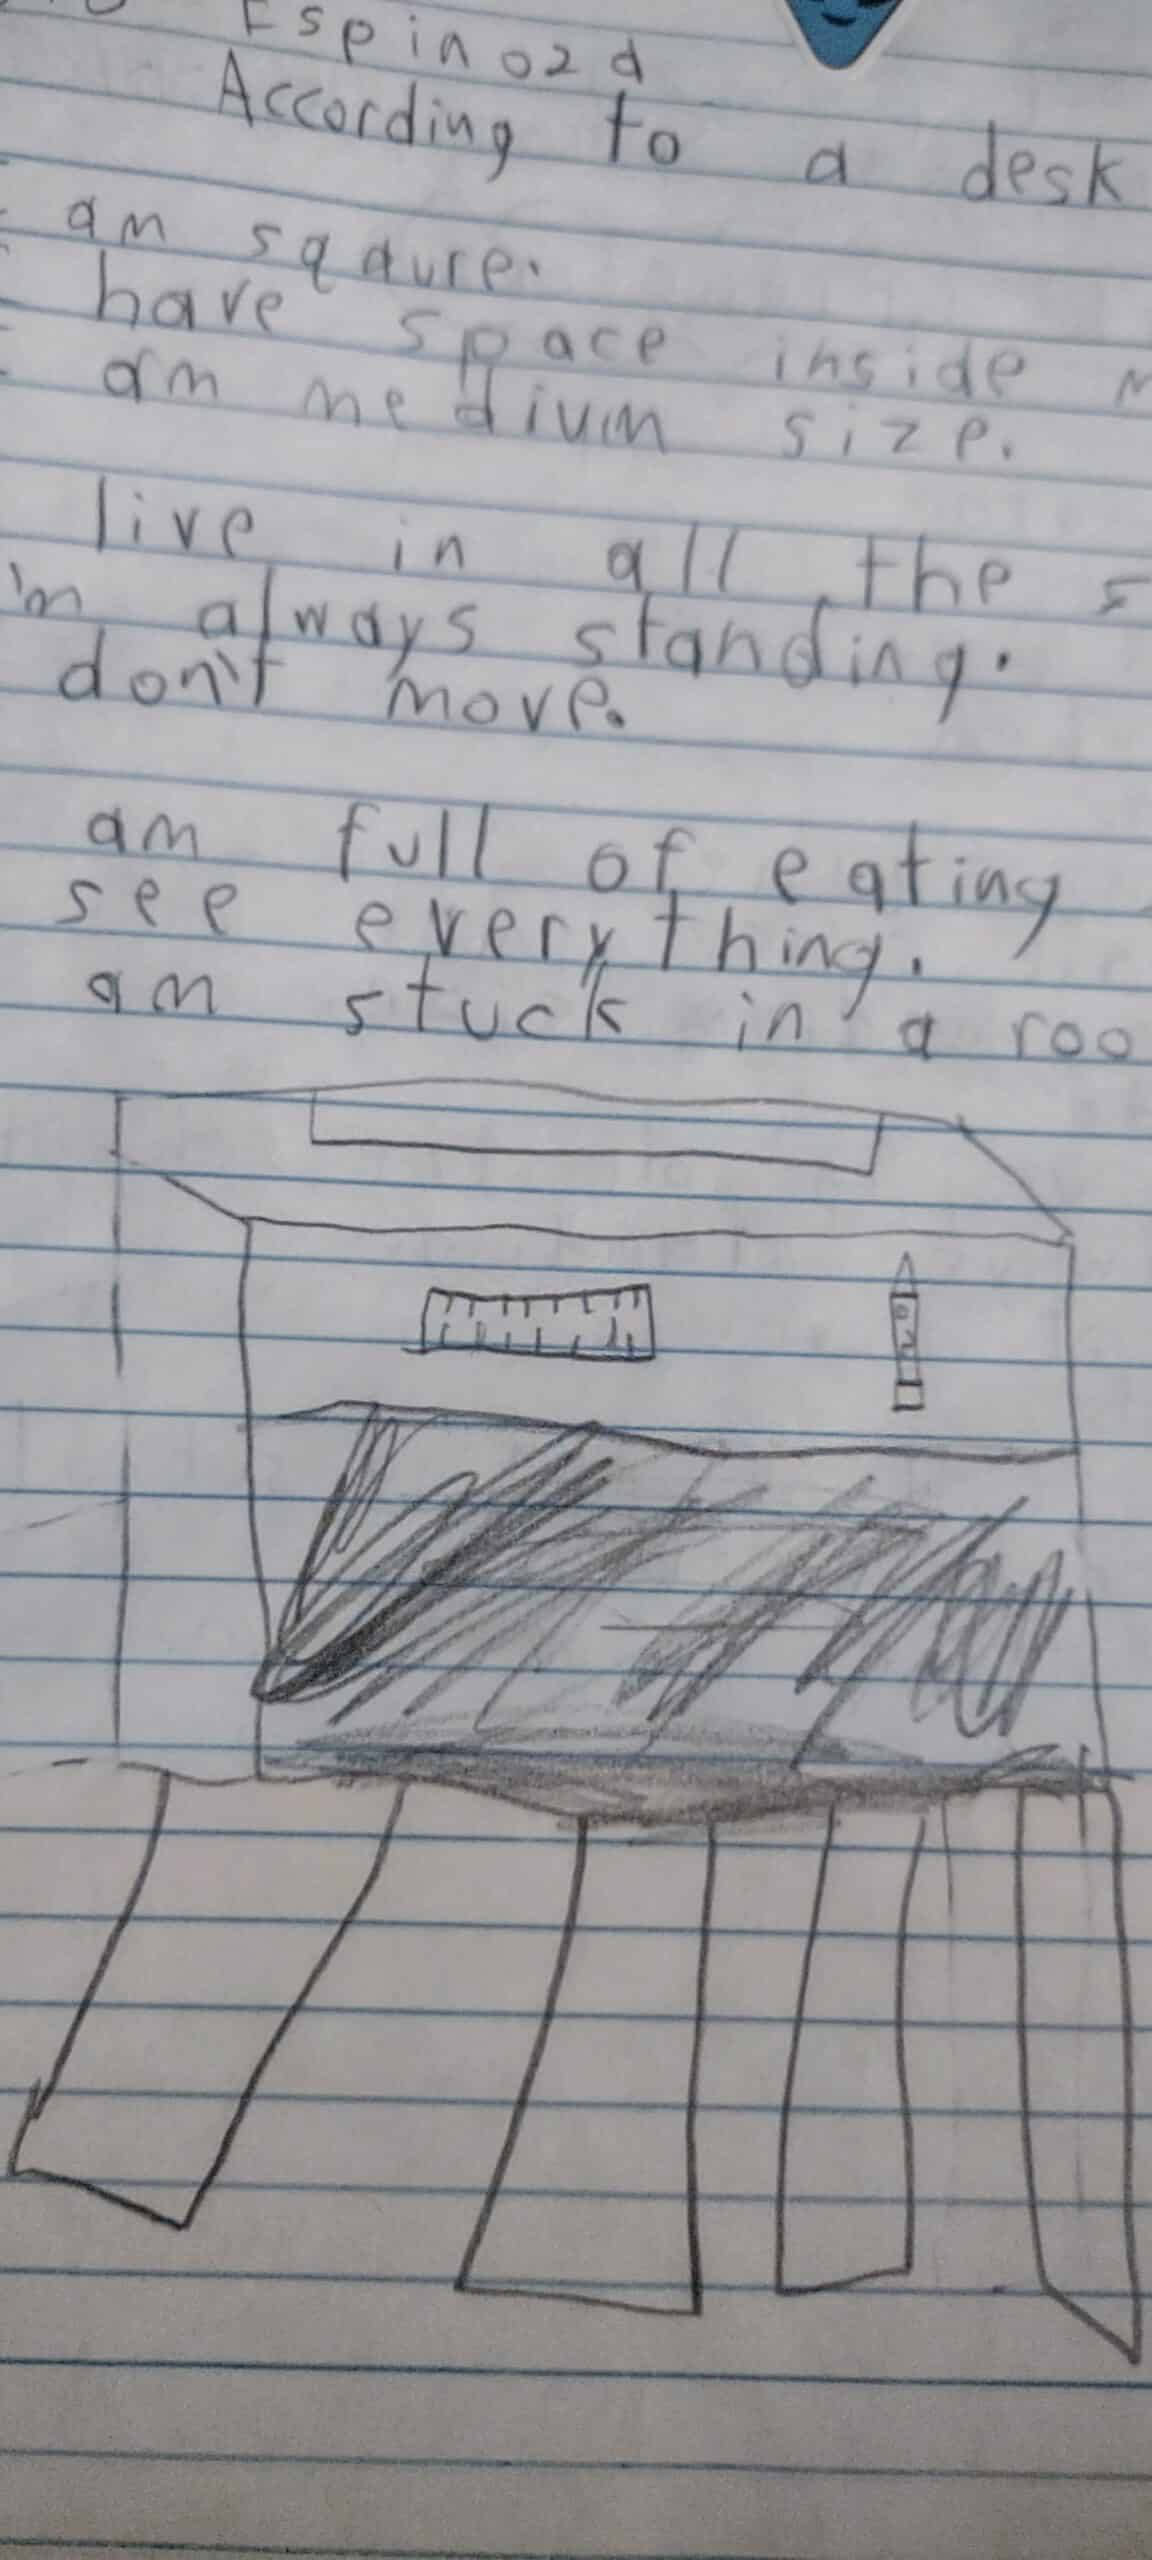 Espinoza
According to a desk
am sqaure.
have space inside
am medium size.
live in all the
'm always standing.
don't move.
am full of eating
see everything.
am stuck in a roo